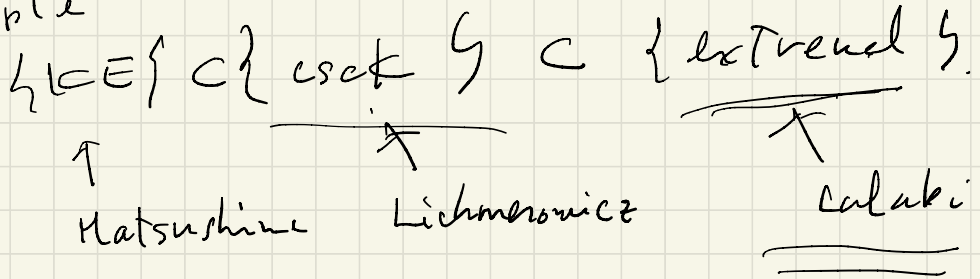 ple
{KE} ⊂ {csck} ⊂ {extremal}.
↑ ↖ ↖
Matsushima Lichnerowicz Calabi